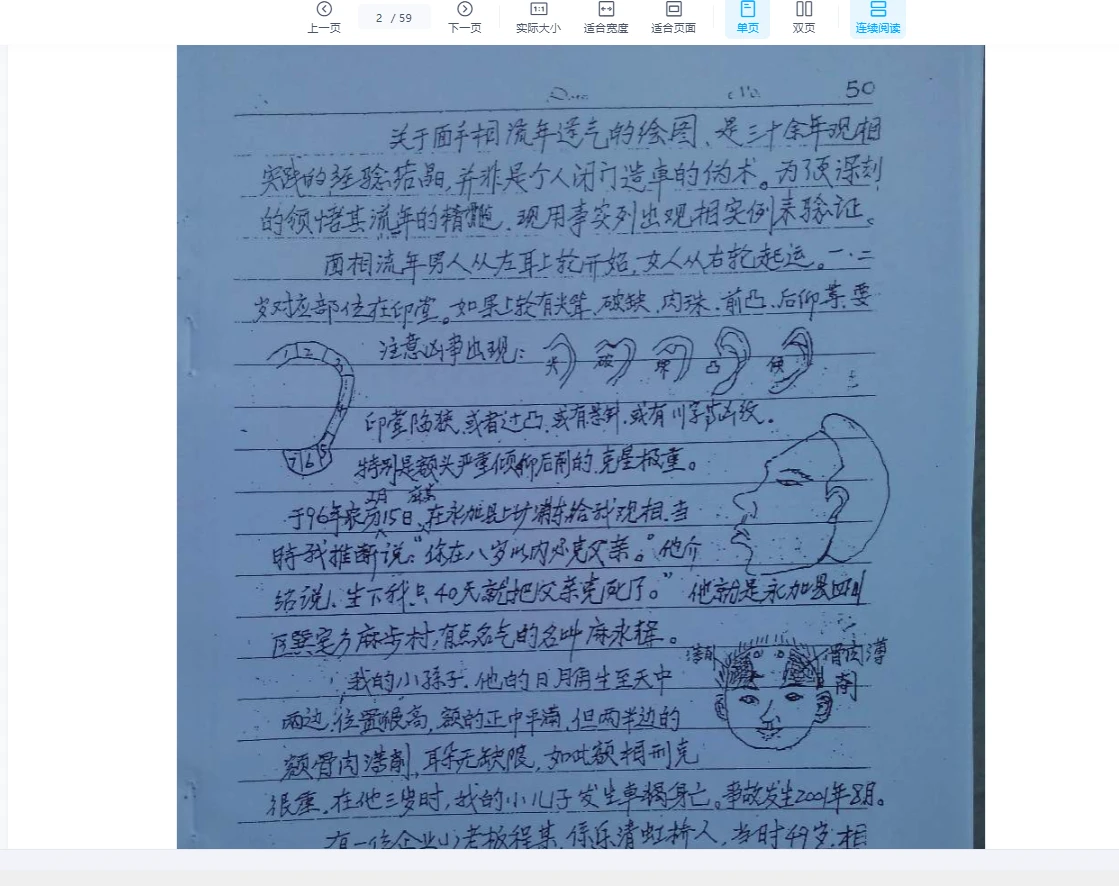 上一页
2 / 59
下一页
1:1
实际大小
适合宽度
适合页面
单页
双页
连续阅读
50
关于面手相流年运气的绘图、是三十余年观相
实践的经验结晶,并非是个人闭门造車的伪术。为了便深刻
的领悟其流年的精髓,现用事实列出观相实例来验证。
面相流年男人从左耳上轮开始,女人从右轮起运。一·二
岁对应部位在印堂。如果上轮有尖聳、破缺、肉珠、前凸、后仰等,要
注意凶事出现:
尖 破 凸
1 2 3 4 5 6 7
印堂陷狭,或者过凸,或有悬针,或有川字纹。
特别是额头严重倾仰后削的,克星极重。
正月
于96年农历15日,在永加县上塘给我观相,当
時我推断说:“你在八岁以内必克父亲。”他介
绍说、生下我只40天就把父亲克死了。” 他就是永加县
区巽宅方麻步村,有点名气的名叫麻永
我的小孫子,他的日月角生至天中
两边,位置很高,额的正中平满,但两半边的
额骨肉薄削,耳朵无缺陷,如此额相刑克
骨肉薄
削
很重,在他三岁时,我的小儿子发生車禍身亡。事故发生2001年8月。
有一位企业小老板程某,係乐清虹桥人,当时49岁,相